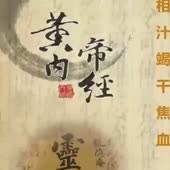 黄帝
内經
靈
相汁竭干焦血